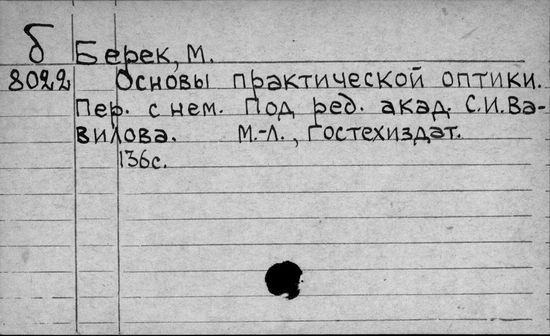 б Берек, М.
8022 Основы практической оптики.
Пер. с нем. Под ред. акад. С.И.Ва-
вилова. М.-Л., Гостехиздат.
136с.